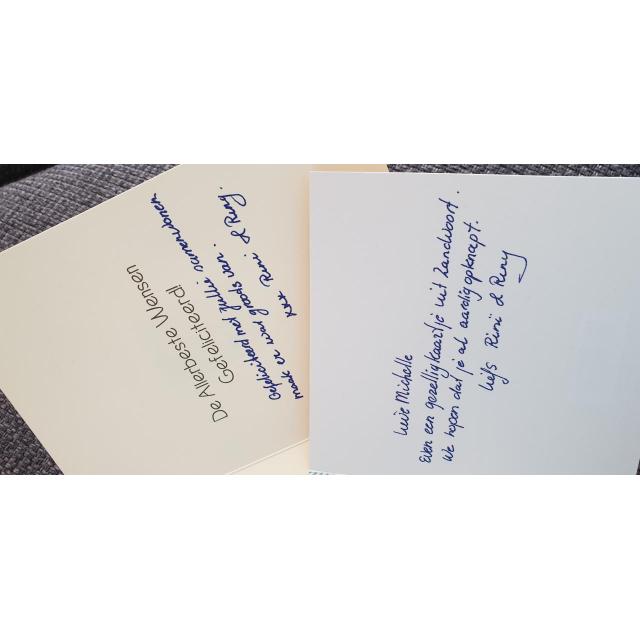 De Allerbeste Wensen
Gefeliciteerd!
Gefeliciteerd met jullie samenwonen
maak er wat goeds van.
xxx Rini & Runy.
Lieve Michelle
Even een gezellig kaartje uit Zandvoort.
We hopen dat je al aardig opknapt.
liefs Rini & Runy